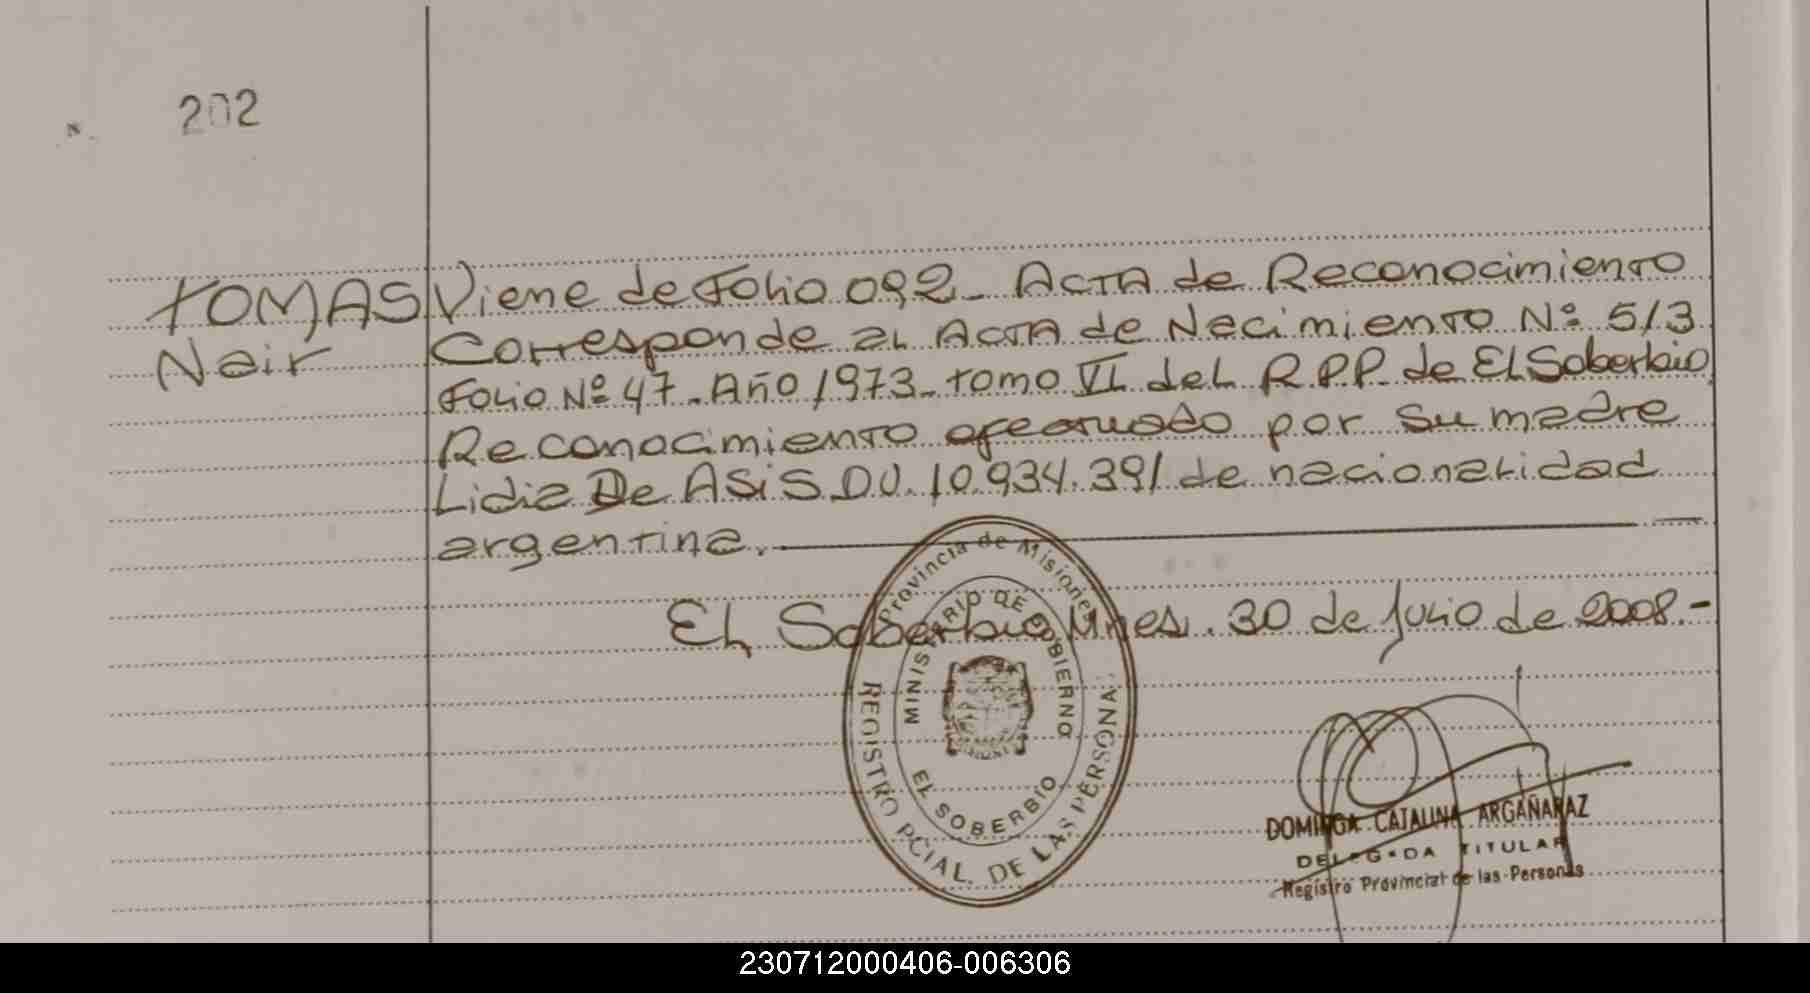 N. 202
TOMAS
Nair
Viene de Folio 092_ ACTA de Reconocimiento
Corresponde al ACTA de Nacimiento Nº 513
Folio Nº 47. Año 1973_ tomo VI del R.P.P. de El Soberbio
Reconocimiento efectuado por su madre
Lidia De ASiS D.U. 10.934.391 de nacionalidad
argentina.
El Soberbio Mnes. 30 de Julio de 2008.-
Provincia de Misiones
MINISTERIO DE GOBIERNO
EL SOBERBIO
REGISTRO PCIAL. DE LAS PERSONAS
DOMINGA CATALINA ARGAÑARAZ
DELEGADA TITULAR
Registro Provincial de las Personas
230712000406-006306